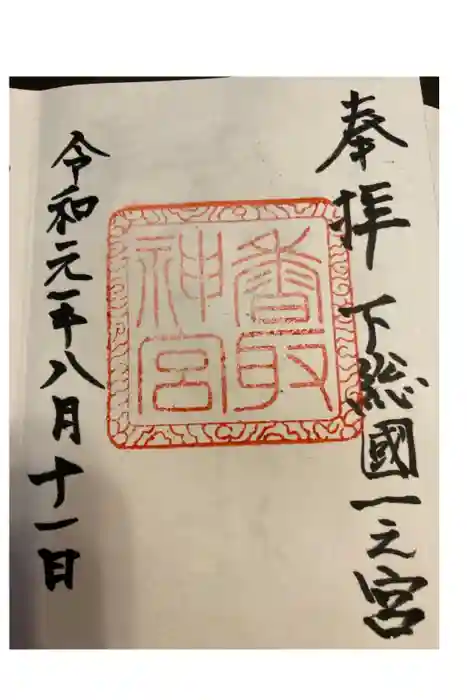 奉拝 下総國一之宮
香取
神宮
令和元年八月十一日